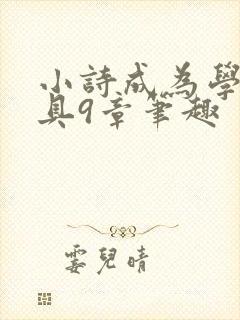 小詩成為學
具9章筆趣
霎兒晴